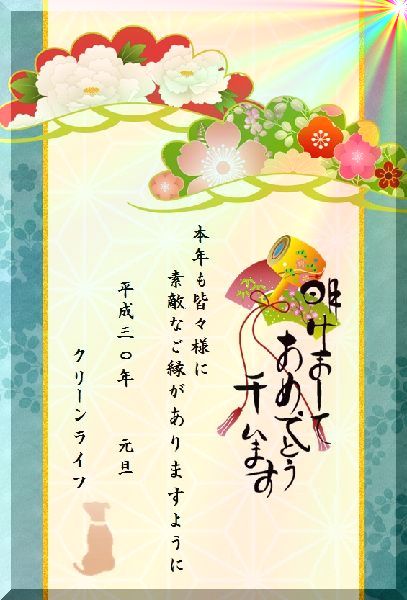 明けまして
おめでとう
ございます
本年も皆々様に
素敵なご縁がありますように
平成三〇年 元旦
クリーンライフ